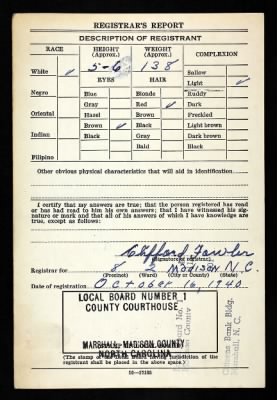 REGISTRAR'S REPORT
DESCRIPTION OF REGISTRANT
RACE HEIGHT (Approx.) WEIGHT (Approx.) COMPLEXION
White ✓ 5-6 138 Sallow
EYES HAIR Light ✓
Negro Blue Blonde Ruddy
Gray Red ✓ Dark
Oriental Hazel Brown Freckled
Brown ✓ Black Light brown
Indian Black Gray Dark brown
Bald Black
Filipino
Other obvious physical characteristics that will aid in identification
I certify that my answers are true; that the person registered has read
or has had read to him his own answers; that I have witnessed his sig-
nature or mark and that all of his answers of which I have knowledge are
true, except as follows:
Clifford Fowler
(Signature of registrar)
Registrar for 2 Madison N.C.
(Precinct) (Ward) (City or County) (State)
Date of registration October 16, 1940
LOCAL BOARD NUMBER 1
COUNTY COURTHOUSE
MARSHALL, MADISON COUNTY
NORTH CAROLINA
(The stamp of the Local Board having jurisdiction of the
registrant shall be placed in the above space.)
Bank Bldg.
Marshall, N. C.